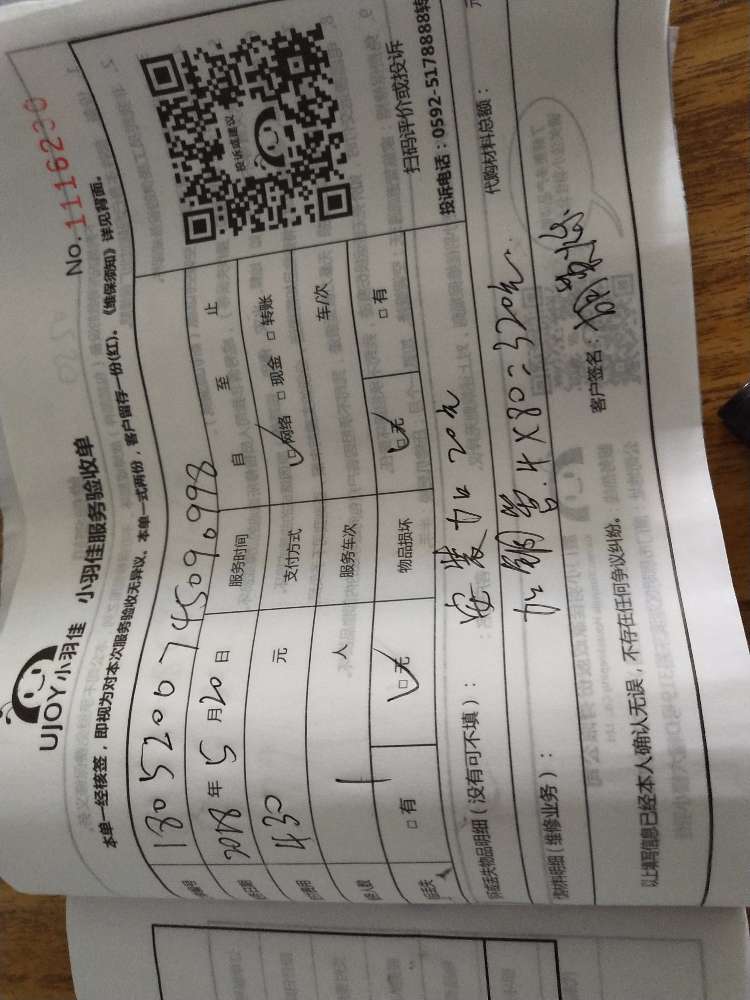 UJOY小羽佳 小羽佳服务验收单
No. 1116230
本单一经核签，即视为对本次服务验收无异议。本单一式两份，客户留存一份(红)。《维保须知》详见背面。
180520074509 0998
2018年5月20日 服务时间 自 至 止
430 元 支付方式 ☑网络 □现金 □转账
1 人 服务车次 车/次
□有 ☑无 物品损坏 ☑无 □有
投诉或建议
扫码评价或投诉
投诉电话：0592-5178888转
丢失物品明细（没有可不填）： 安装加 20元
材料明细（维修业务）： 代购材料总额：
加铜管.4×80=320元.
以上填写信息已经本人确认无误，不存在任何争议纠纷。
客户签名：